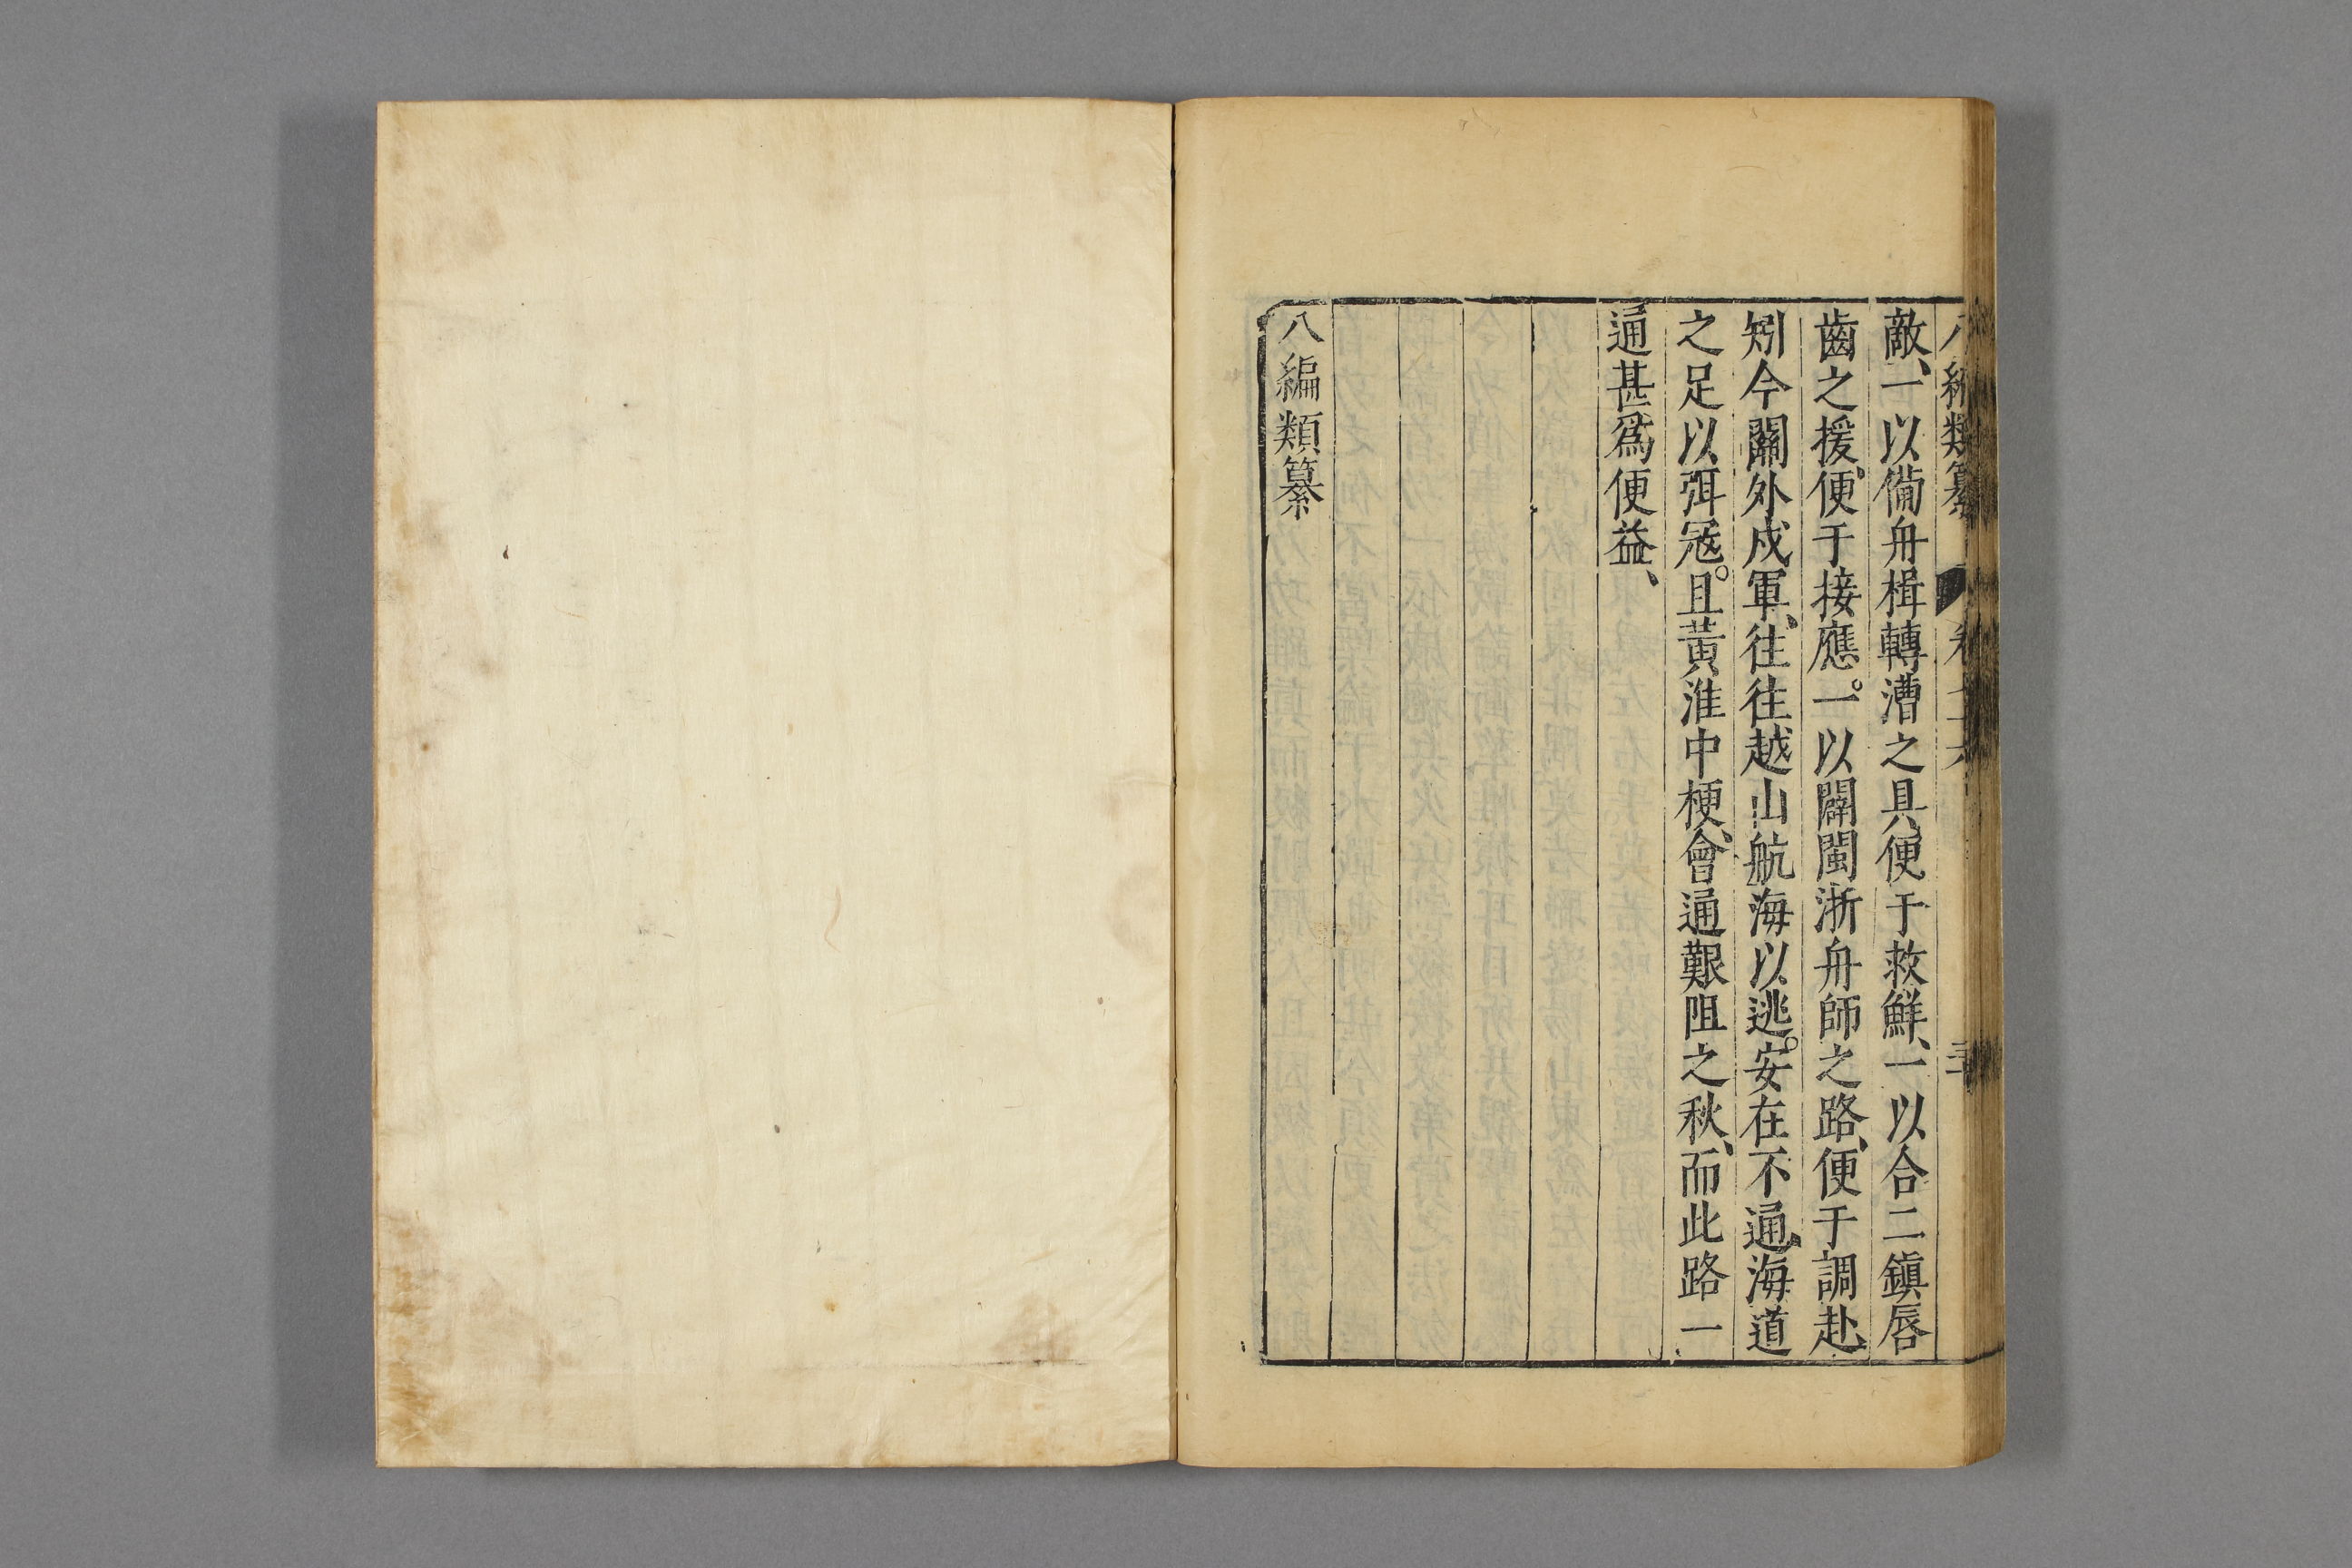 八編類纂
敵、一以備舟楫轉漕之具、便于救鮮、一以合二鎮唇
齒之援。便于接應。一以闢閩浙舟師之路、便于調赴
矧今關外戍軍、往往越山航海以逃。安在不通、海道
之足以弭寇。且黃淮中梗、會通艱阻之秋、而此路一
通甚爲便益、
八編類纂